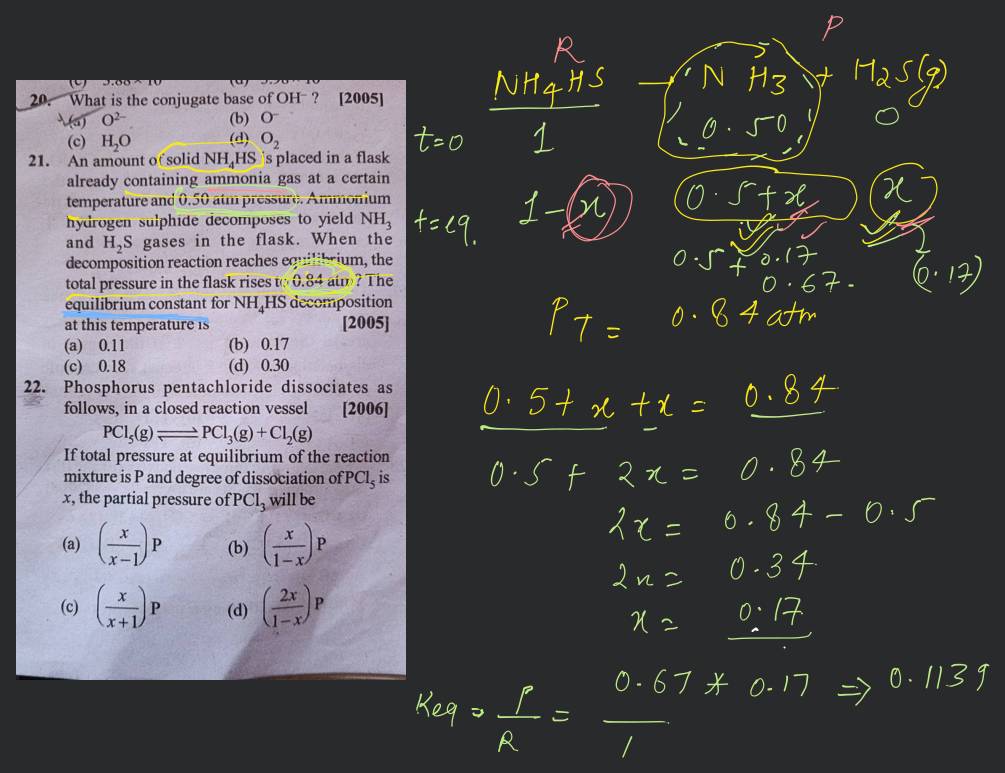 20. What is the conjugate base of OH⁻ ? [2005]
(a) O²⁻ (b) O⁻
(c) H₂O (d) O₂
21. An amount of solid NH₄HS is placed in a flask
already containing ammonia gas at a certain
temperature and 0.50 atm pressure. Ammonium
hydrogen sulphide decomposes to yield NH₃
and H₂S gases in the flask. When the
decomposition reaction reaches equilibrium, the
total pressure in the flask rises to 0.84 atm? The
equilibrium constant for NH₄HS decomposition
at this temperature is [2005]
(a) 0.11 (b) 0.17
(c) 0.18 (d) 0.30
22. Phosphorus pentachloride dissociates as
follows, in a closed reaction vessel [2006]
PCl₅(g) ⇌ PCl₃(g) + Cl₂(g)
If total pressure at equilibrium of the reaction
mixture is P and degree of dissociation of PCl₅ is
x, the partial pressure of PCl₃ will be
(a) (x/(x−1)) P (b) (x/(1−x)) P
(c) (x/(x+1)) P (d) (2x/(1−x)) P
R P
NH4HS → NH3 + H2S(g)
t=0 1 0.50 0
t=eq. 1-x 0.5+x x
0.5+0.17 (0.17)
0.67.
PT = 0.84 atm
0.5+x+x = 0.84
0.5 + 2x = 0.84
2x = 0.84 - 0.5
2x = 0.34
x = 0.17
Keq = P/R = 0.67 * 0.17 / 1 ⇒ 0.1139